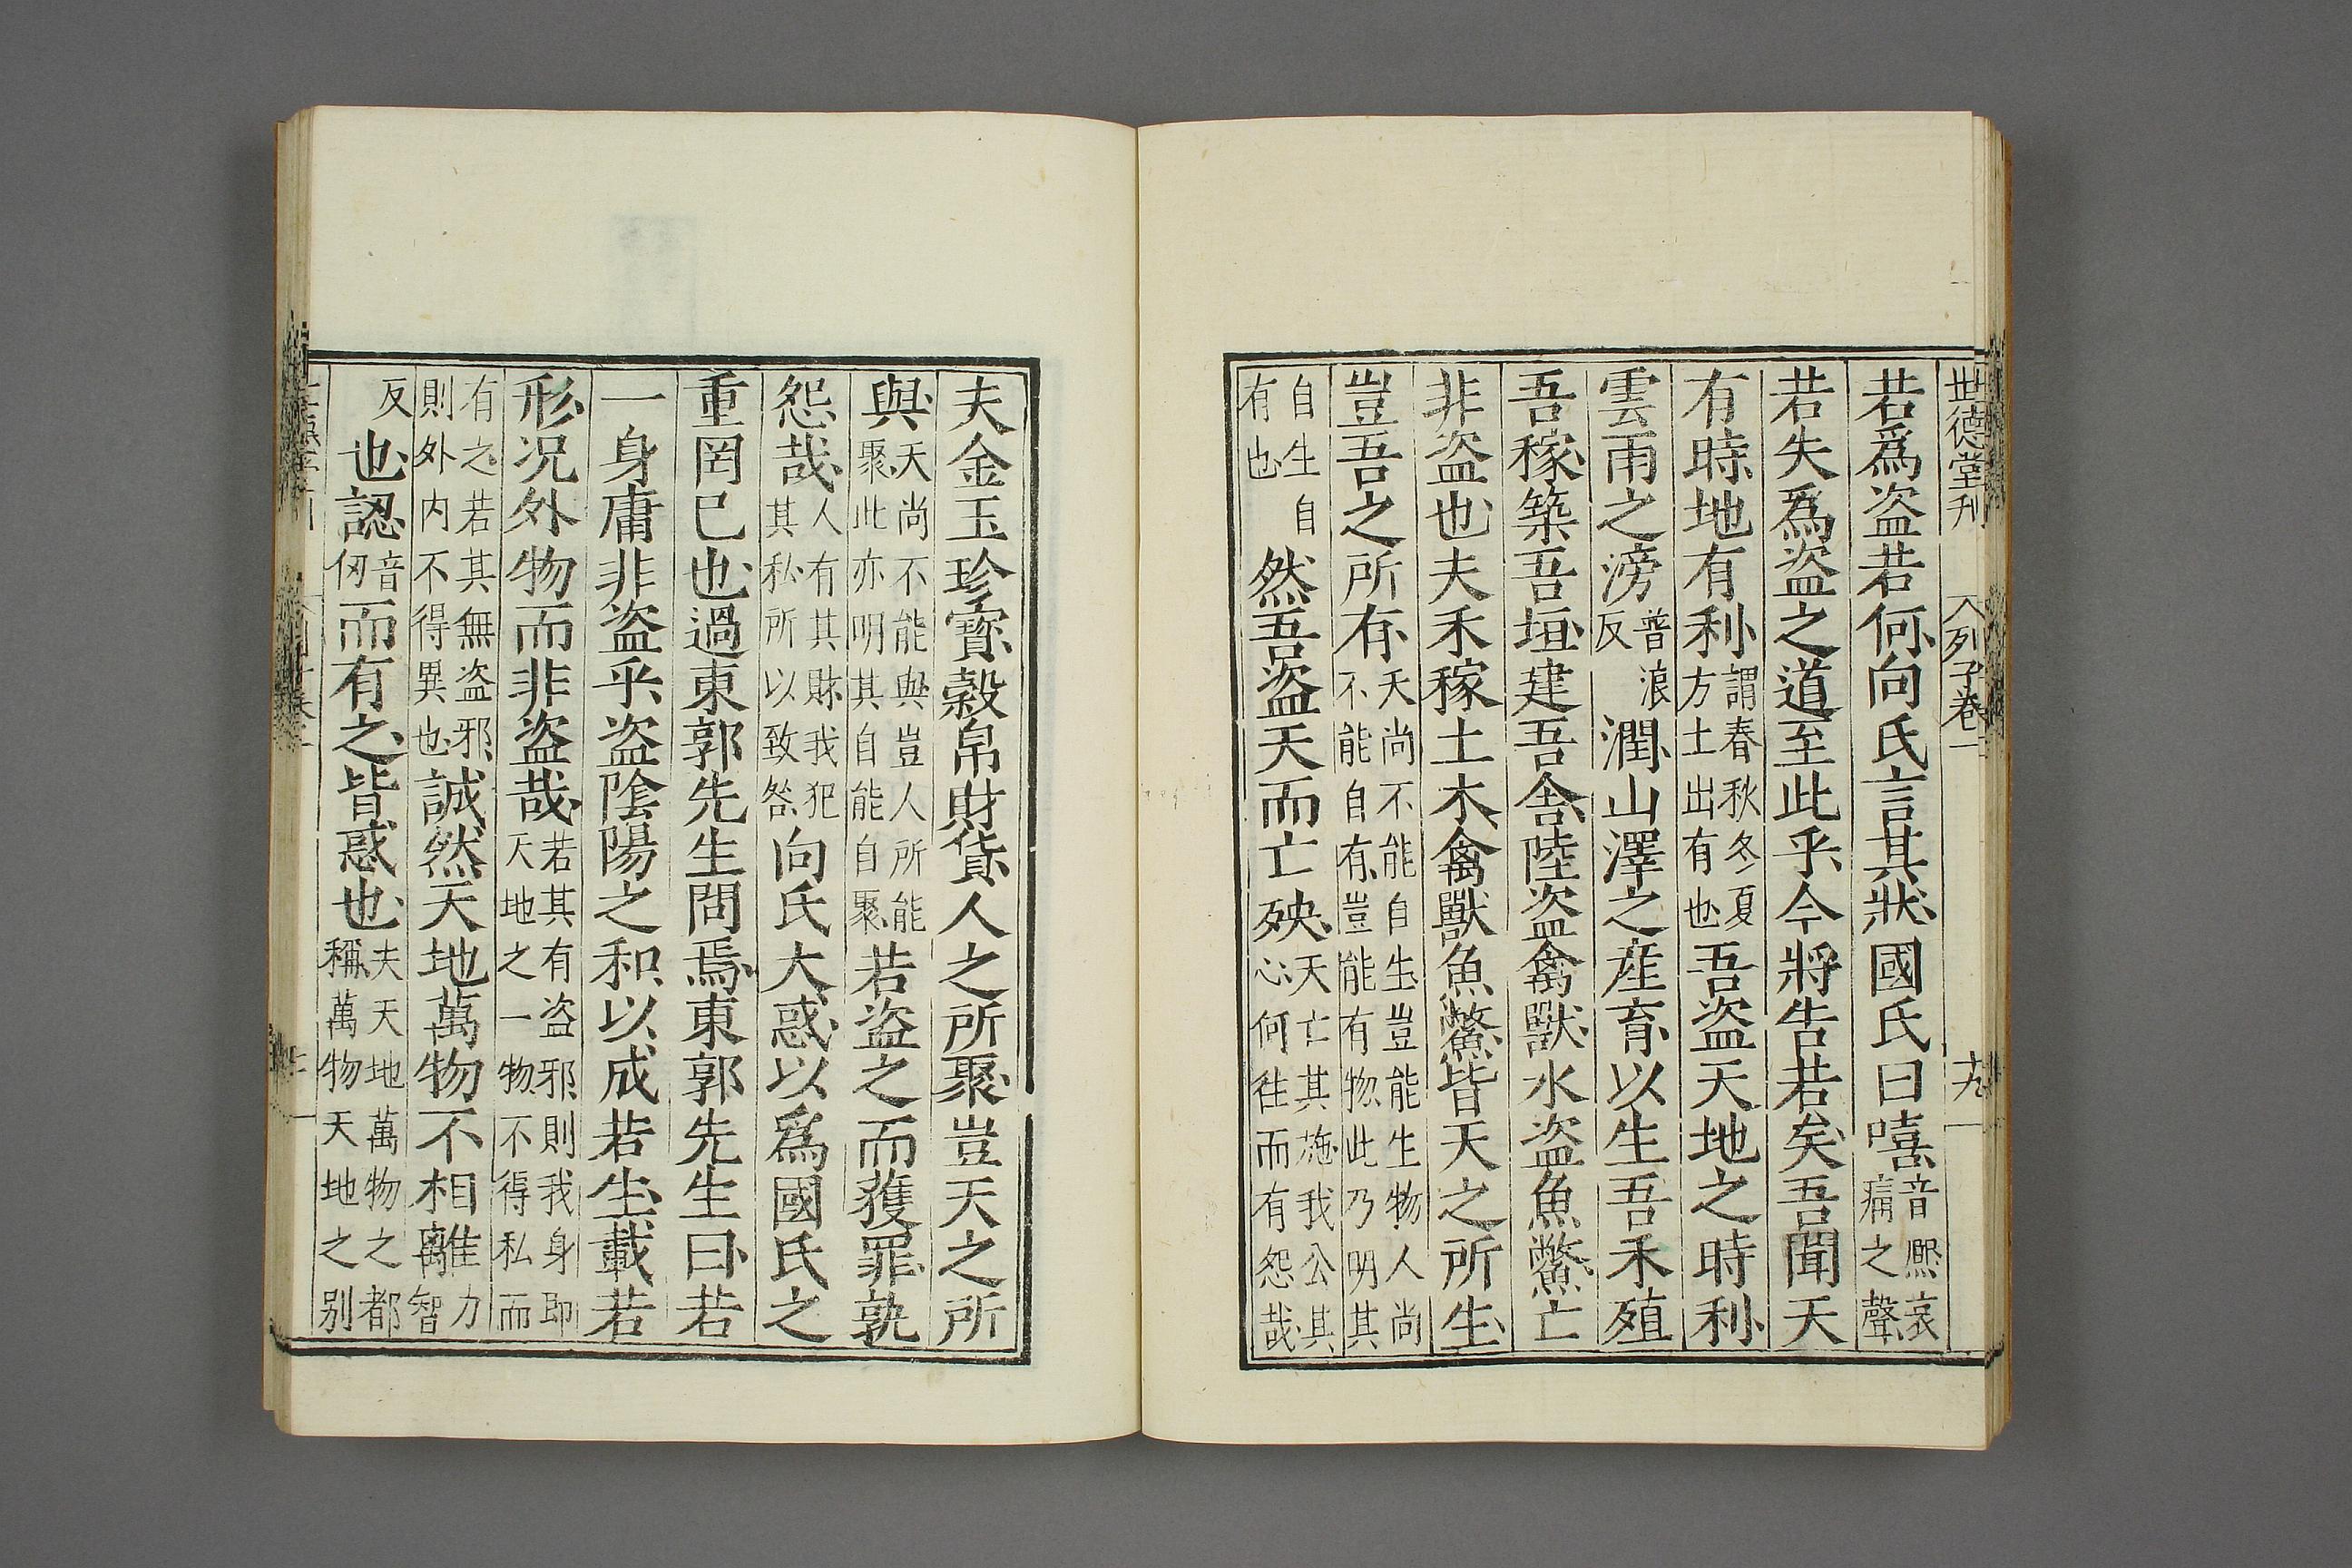 世德堂刊 列子卷一 十九
若爲盗若何向氏言其狀國氏曰嘻音熈哀痛之聲
若失爲盗之道至此乎今將告若矣吾聞天
有時地有利謂春秋冬夏方土出有也吾盗天地之時利
雲雨之滂普浪反潤山澤之産育以生吾禾殖
吾稼築吾垣建吾舍陸盗禽獸水盗魚鱉亡
非盗也夫禾稼土木禽獸魚鱉皆天之所生
豈吾之所有天尚不能自生豈能生物人尚不能自有豈能有物此乃明其
自生自有也然吾盗天而亡殃天亡其施我公其心何徃而有怨哉
夫金玉珍寳榖帛財貨人之所聚豈天之所
與天尚不能與豈人所能聚此亦明其自能自聚若盗之而獲罪孰
怨哉人有其財我犯其私所以致咎向氏大惑以爲國氏之
重罔已也過東郭先生問焉東郭先生曰若
一身庸非盗乎盗隂陽之和以成若生載若
形况外物而非盗哉若其有盗邪則我身即天地之一物不得私而
有之若其無盗邪則外内不得異也誠然天地萬物不相離力智
反也認音仞而有之皆惑也夫天地萬物之都稱萬物天地之别